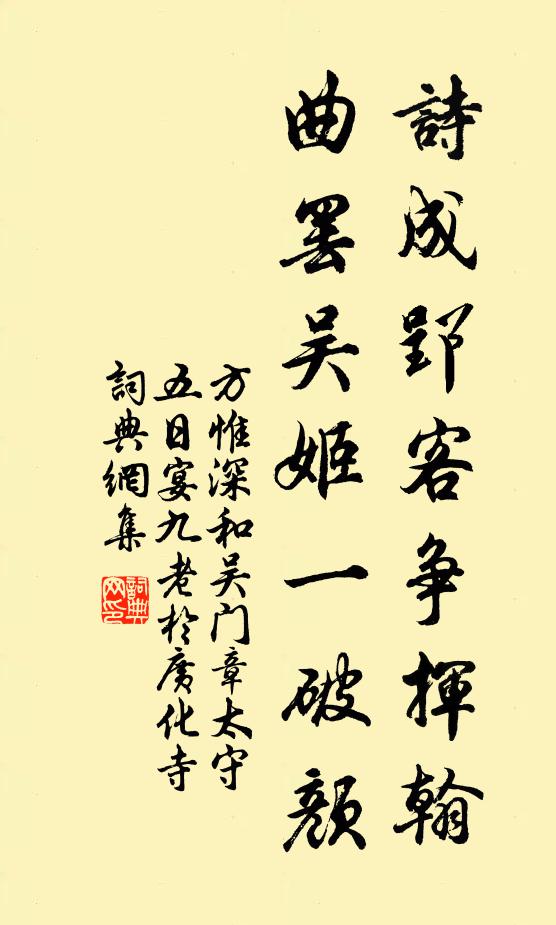 詩成郢客争揮翰
曲罢吴姬一破顔
方惟深和吴门章太守
五日宴九老於廣化寺
詞典網集
詞典
网印